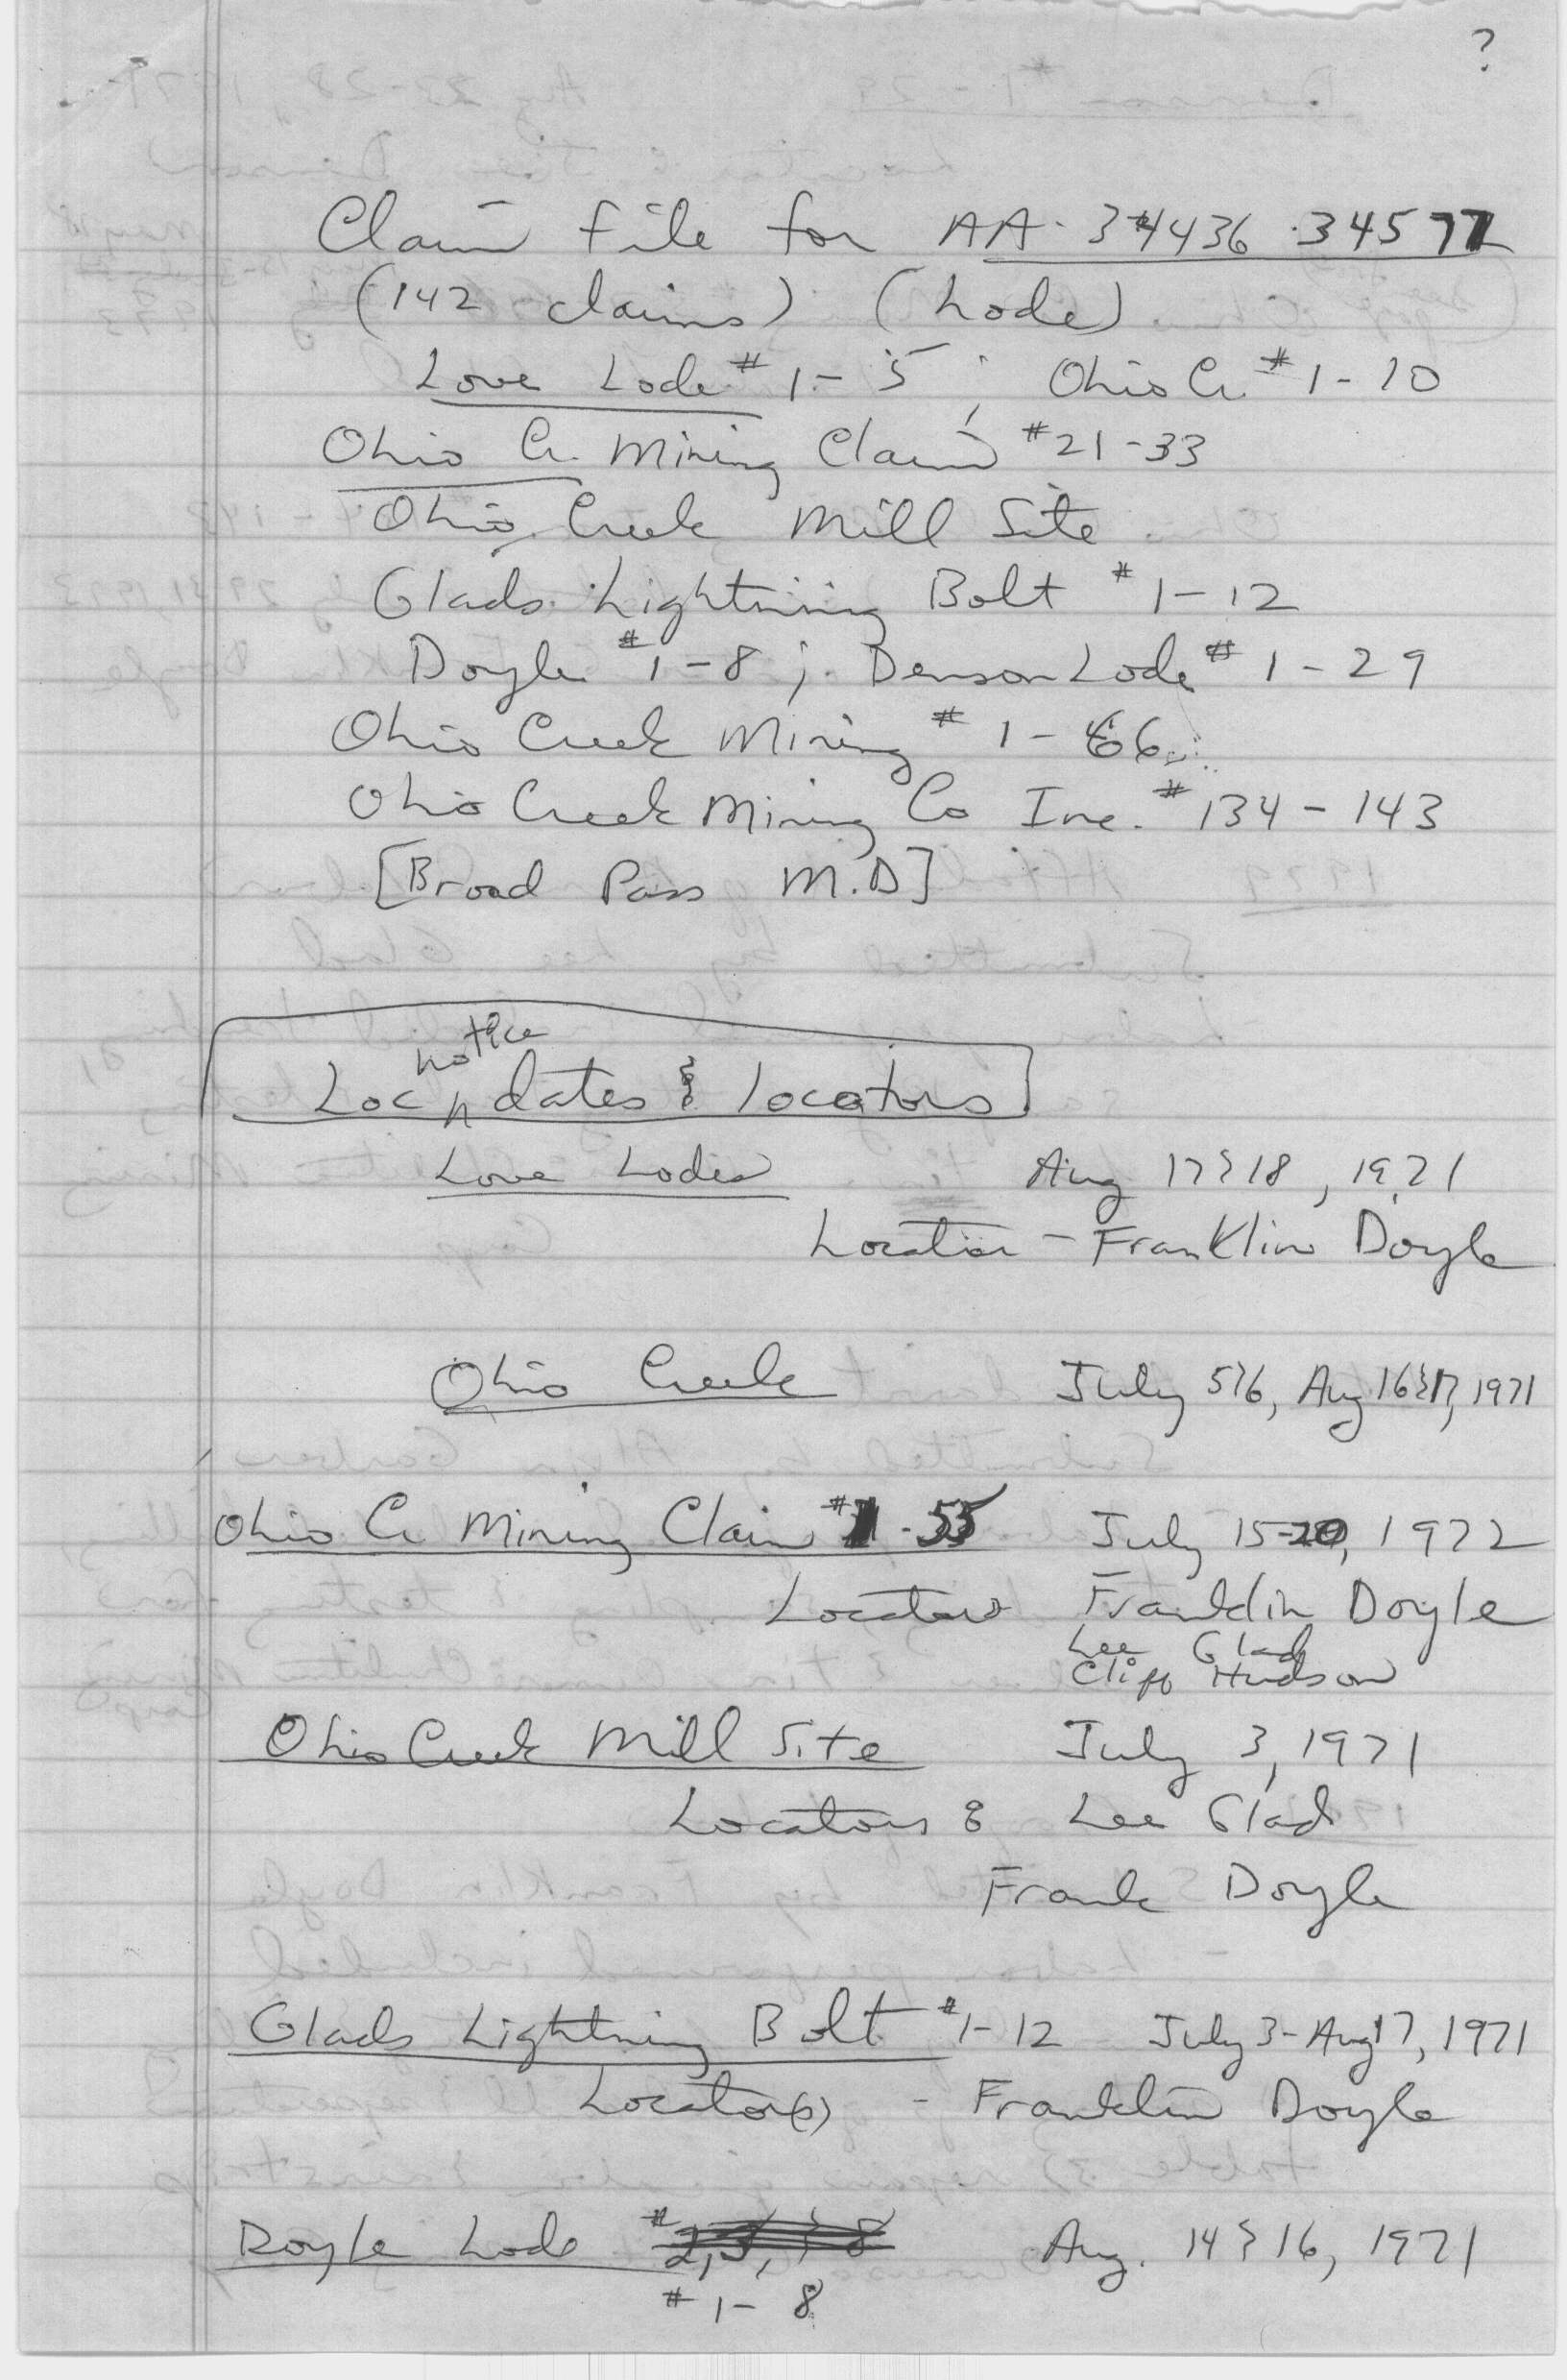 ?
Claim File for AA-34436-34577
(142 claims) (Lode)
Love Lode #1-5; Ohio Cr. #1-10
Ohio Cr. Mining Claim #21-33
Ohio Creek Mill Site
Glads Lightning Bolt #1-12
Doyle #1-8; Denson Lode #1-29
Ohio Creek Mining #1-66
Ohio Creek Mining Co Inc. #134-143
[Broad Pass M.D]
notice
Locn dates & locators
Love Lodes Aug 17&18, 1971
Locator - Franklin Doyle
Ohio Creek July 5&6, Aug 16&17, 1971
Ohio Cr Mining Claim #1-55 July 15-20, 1972
Locators Franklin Doyle
Lee Glad
Cliff Hudson
Ohio Creek Mill Site July 3, 1971
Locators: Lee Glad
Frank Doyle
Glads Lightning Bolt #1-12 July 3-Aug 17, 1971
Locator(s) - Franklin Doyle
Doyle Lode #2,3, & 8 Aug. 14 & 16, 1971
#1-8